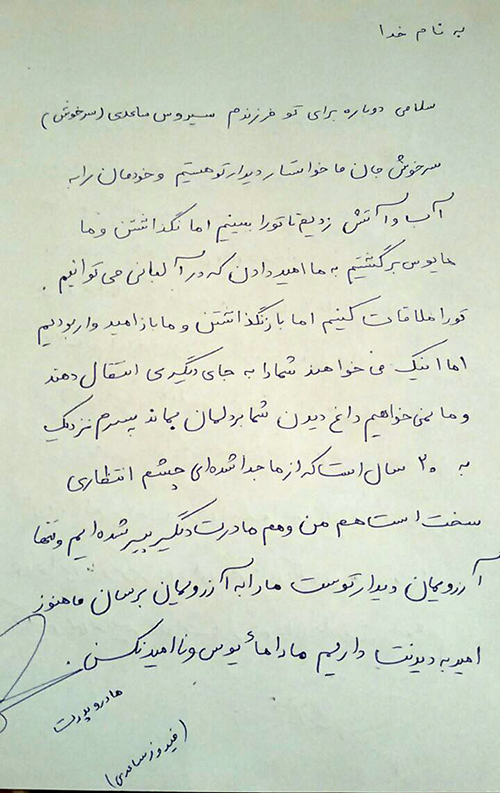 به نام خدا
سلامی دوباره برای تو فرزندم سیروس ساعدی (سرخوش)
سرخوش جان ما خواستار دیدار تو هستیم و خودمان را به
آب و آتش زدیم تا تو را ببینیم اما نگذاشتن و ما
مایوس برگشتیم به ما امید دادن که در آلبانی می توانیم
تو را ملاقات کنیم اما باز نگذاشتن و ما باز امیدوار بودیم
اما اینک می خواهند شما را به جای دیگری انتقال دهند
و ما نمی خواهیم داغ دیدن شما بر دلمان بماند پسرم نزدیک
به ۲۰ سال است که از ما جدا شده ای چشم انتظاری
سخت است هم من و هم مادرت دیگر پیر شده ایم و تنها
آرزویمان دیدار توست ما را به آرزویمان برسان ما هنوز
امید به دیدنت داریم ما را مأیوس و ناامید نکن.
مادر و پدرت
(فیروز ساعدی)